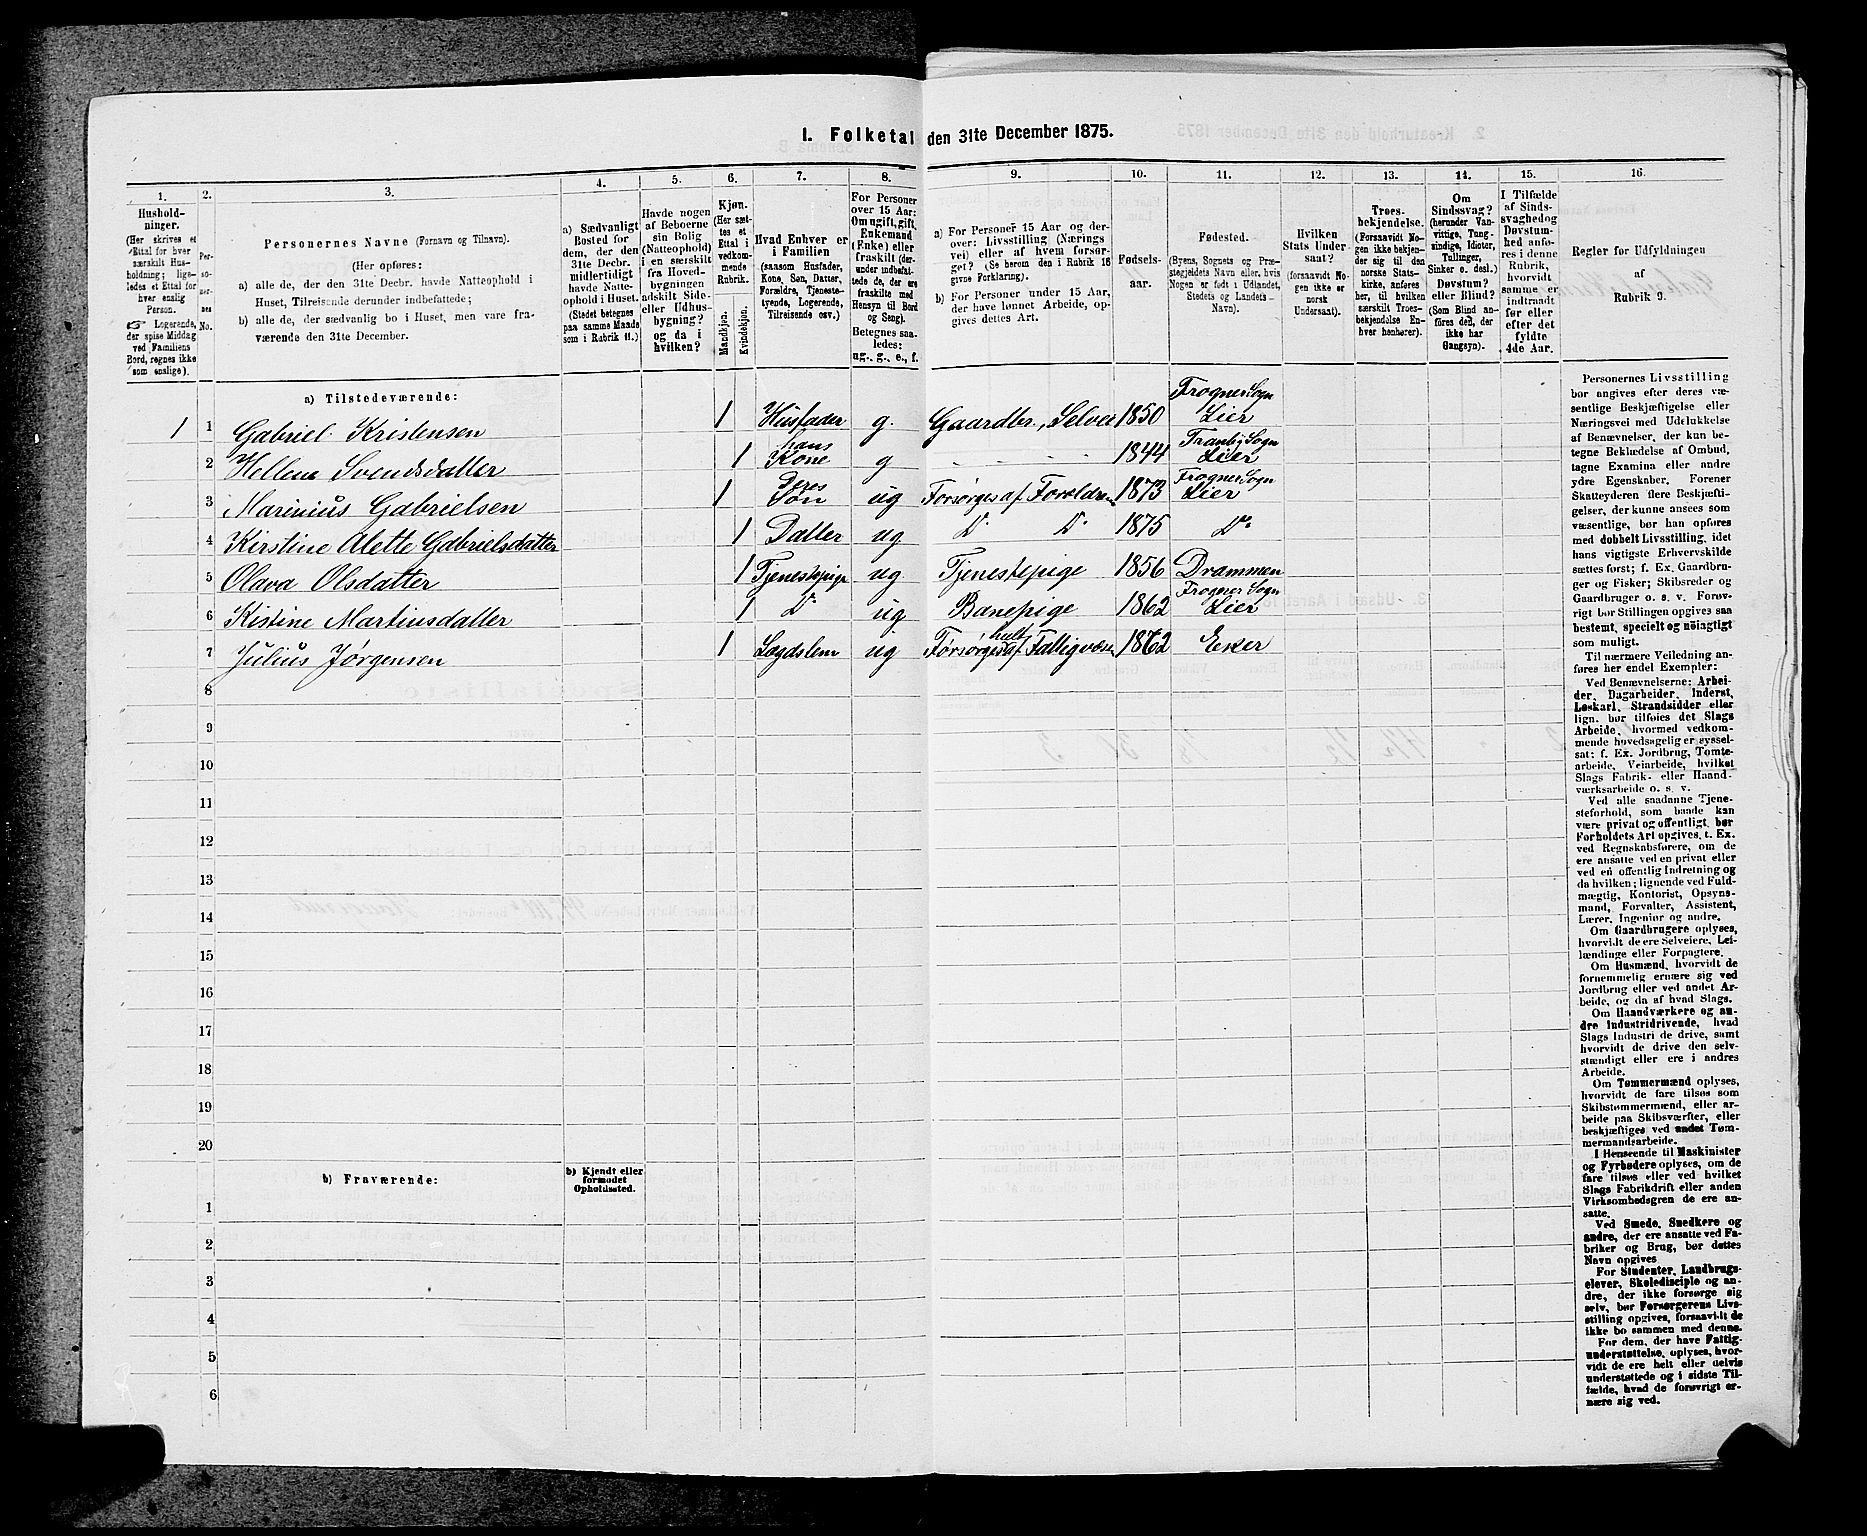 1. Folketal den 31te December 1875.
1. 2. 3. 4. 5. 6. 7. 8. 9. 10. 11. 12. 13. 14. 15. 16.
Husholdninger.
(Her skrives et
Ettal for hver
særskilt Husholdning;
ligeledes et Ettal for
hver enslig
Person.
☞ Logerende,
der spise Middag
ved Familiens
Bord, regnes ikke
som enslige).
Personernes No.
Personernes Navne (Fornavn og Tilnavn).
(Her opføres:
a) alle de, der den 31te Decbr. havde Natteophold i
Huset, Tilreisende derunder indbefattede;
b) alle de, der sædvanlig bo i Huset, men vare fraværende
den 31te December.
a) Sædvanligt
Bosted for
dem, der den
31te Decbr.
midlertidigt
havde Natteophold
i Huset.
(Stedet betegnes
paa samme Maade
som i Rubrik 11.)
Havde nogen
af Beboerne
sin Bolig
(Natteophold)
i en særskilt
fra Hovedbygningen
adskilt Side-
eller Udhusbygning?
og da i
hvilken?
Kjøn.
(Her sættes
et
Ettal i
vedkommende
Rubrik.
Mandkjøn.
Kvindekjøn.
Hvad Enhver er
i Familien
(saasom Husfader,
Kone, Søn, Datter,
Forældre, Tjenestetyende,
Logerende,
Tilreisende osv.)
For Personer
over 15 Aar:
Om ugift, gift,
Enkemand
(Enke) eller
fraskilt (derunder
indbefattede
de, der ere
fraskilte med
Hensyn til Bord
og Seng).
Betegnes saaledes:
ug., g., e., f.
a) For Personer 15 Aar og derover:
Livsstilling (Næringsvei)
eller af hvem forsørget?
(Se herom den i Rubrik 16
givne Forklaring).
b) For Personer under 15 Aar,
der have lønnet Arbeide, opgives
dettes Art.
Fødselsaar.
Fødested.
(Byens, Sognets og Præstegjeldets
Navn eller, hvis
Nogen er født i Udlandet,
Stedets og Landets
Navn).
Hvilken
Stats Undersaat?
(forsaavidt Nogen
ikke er
norsk
Undersaat).
Troesbekjendelse.
(Forsaavidt Nogen
ikke bekjender
sig til den
norske Statskirke,
anføres
her, til hvilken
særskilt Troesbekjendelse
Enhver
henhører).
Om
Sindssvag?
(herunder Vanvittige,
Tungsindige,
Idioter,
Tullinger,
Sinker o. desl.)
Døvstum?
eller Blind?
(Som Blind anføres
den, der
ikke har
Gangsyn).
I Tilfælde
af Sindssvaghed
og
Døvstumhed
anføres
i denne
Rubrik,
hvorvidt
samme er
indtraadt
før eller
efter det
fyldte
4de Aar.
Regler for Udfyldningen
af
Rubrik 9.
a) Tilstedeværende:
1 1 Gabriel Kristensen 1 Husfader g. Gaardbr., Selveier 1850 Frogner Sogn Lier
2 Hellene Svendsdatter 1 hans Kone g - - - - 1844 Tranby Sogn Lier
3 Marinius Gabrielsen 1 Deres Søn ug Forsørges af Foreldrene 1873 Frogner Sogn Lier
4 Kirstine Alette Gabrielsdatter 1 Datter ug D° D° 1875 D°
5 Olava Olsdatter 1 Tjenestepige ug Tjenestepige 1856 Drammen
6 Kistine Martinusdatter 1 D° ug Barnepige 1862 Frogner Sogn Lier
7 Julius Jørgensen 1 Lægdslem ug Forsørges helt af Fattigvæsen 1862 Eker
8
9
10
11
12
13
14
15
16
17
18
19
20
b) Fraværende:
b) Kjendt eller
formodet
Opholdssted.
1
2
3
4
5
6
Personernes Livsstilling
bør angives efter deres væsentlige
Beskjæftigelse eller
Næringsvei med Udelukkelse
af Benævnelser, der kun betegne
Beklædelse af Ombud,
tagne Examina eller andre
ydre Egenskaber. Forener
Skatteyderen flere Beskjæftigelser,
der kunne ansees som
væsentlige, bør han opføres
med dobbelt Livsstilling, idet
hans vigtigste Erhvervskilde
sættes først; f. Ex. Gaardbruger
og Fisker; Skibsreder og
Gaardbruger o. s. v. Forøvrigt
bør Stillingen opgives saa
bestemt, specielt og nøiagtigt
som muligt.
Til nærmere Veiledning anføres
her endel Exempler:
Ved Benævnelserne: Arbeider,
Dagarbeider, Inderst,
Løskarl, Strandsidder eller
lign. bør tilføies det Slags
Arbeide, hvormed vedkommende
hovedsagelig er sysselsat;
f. Ex. Jordbrug, Tomtearbeide,
Veiarbeide, hvilket
Slags Fabrik- eller Haandværksarbeide
o. s. v.
Ved alle saadanne Tjenesteforhold,
som baade kan
være privat og offentligt, bør
Forholdets Art opgives, t. Ex.
ved Regnskabsførere, om de
ere ansatte ved en privat eller
ved en offentlig Indretning og
da hvilken; lignende ved Fuldmægtig,
Kontorist, Opsynsmand,
Forvalter, Assistent,
Lærer, Ingeniør og andre.
Om Gaardbrugere oplyses,
hvorvidt de ere Selveiere, Leilændinge
eller Forpagtere.
Om Husmænd, hvorvidt de
fornemmelig ernære sig ved
Jordbrug eller ved andet Arbeide,
og da af hvad Slags.
Om Haandværkere og andre
Industridrivende, hvad
Slags Industri de drive, samt
hvorvidt de drive den selvstændigt
eller ere i andres
Arbeide.
Om Tømmermænd oplyses,
hvorvidt de fare tilsøs som
Skibstømmermænd, eller arbeide
paa Skibsværfter, eller
beskjæftiges ved andet Tømmermandsarbeide.
I Henseende til Maskinister
og Fyrbødere oplyses, om de
fare tilsøs eller ved hvilket
Slags Fabrikdrift eller anden
Virksomhedsgren de ere ansatte.
Ved Smede, Snedkere og
andre, der ere ansatte ved Fabriker
og Brug, bør dettes
Navn opgives
For Studenter, Landbrugselever,
Skoledisciple og andre,
der ikke forsørge sig
selv, bør Forsørgerens Livsstilling
opgives, forsaavidt de
ikke bo sammen med denne.
For dem, der have Fattigunderstøttelse,
oplyses, hvorvidt
de ere helt eller delvis
understøttede og i sidste Tilfælde,
hvad de forøvrigt ernære
sig ved.